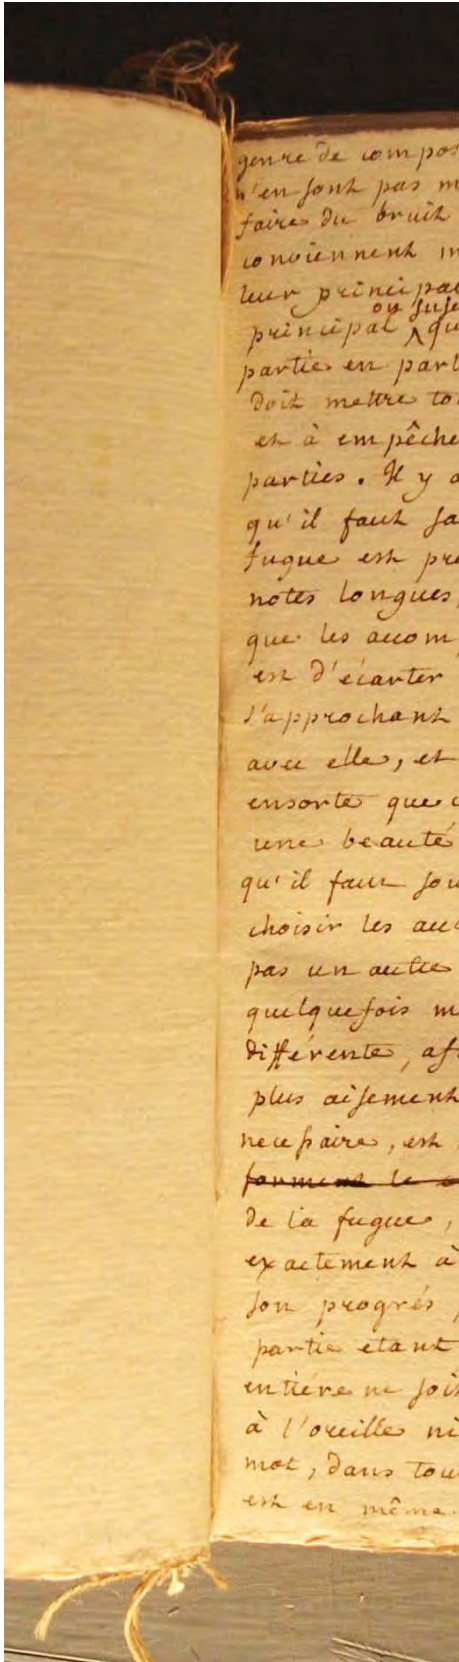 genre de compos
n'en sont pas m
faire du bruit
conviennent m
leur principal
ou suje
principal ^ qu
partie en part
doit mettre to
et à empêche
parties. Il y a
qu'il faut sa
fugue est pre
notes longues,
que les accom
est d'écarter
s'approchant
avec elle, et
ensorte que c
une beauté
qu'il faut sou
choisir les acc
pas un autre
quelquefois m
différente, af
plus aisement
necessaire, est
forment le
de la fugue,
exactement à
son progrés
partie etant
entiére ne soit
à l'oreille ni
mot, dans tou
est en même